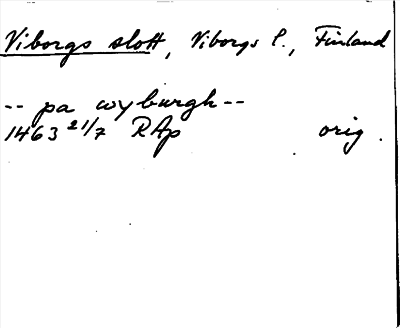 Viborgs slott, Viborgs l., Finland
-- pa wyburgh --
1463 21/7 RAp orig.